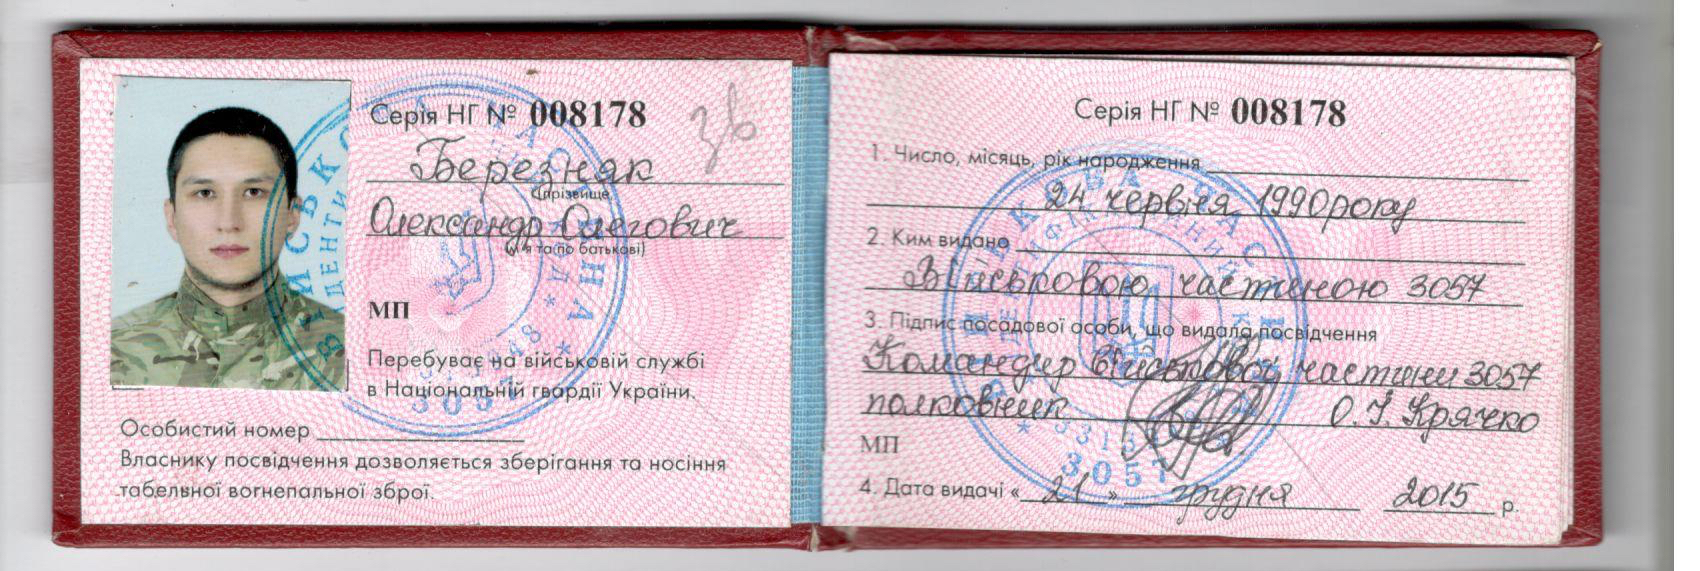 Серія НГ № 008178
зв
Березняк
(прізвище,
Олександр Олегович
ім'я та по батькові)
МП
Перебуває на військовій службі
в Національній гвардії України.
Особистий номер
Власнику посвідчення дозволяється зберігання та носіння
табельної вогнепальної зброї.
Серія НГ № 008178
1. Число, місяць, рік народження
24 червня 1990 року
2. Ким видано
Військовою частиною 3057
3. Підпис посадової особи, що видала посвідчення
Командир військової частини 3057
полковник О.І. Крячко
МП
4. Дата видачі « 21 » грудня 2015 р.
ВІЙСЬКОВА ЧАСТИНА
3057